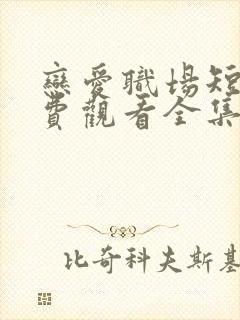 戀愛職場短
費觀看全集
比奇科夫斯基